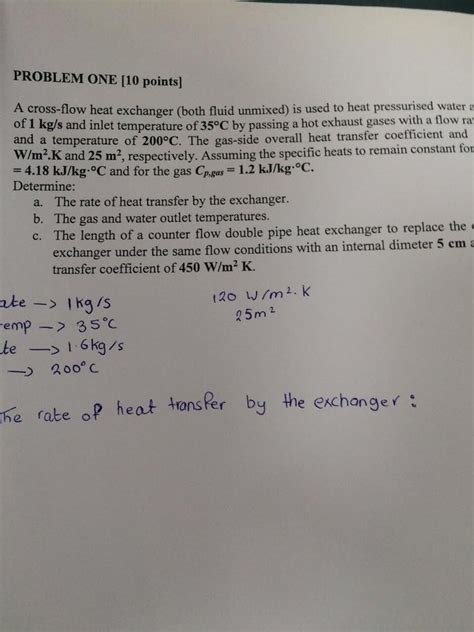 PROBLEM ONE [10 points]
A cross-flow heat exchanger (both fluid unmixed) is used to heat pressurised water
of 1 kg/s and inlet temperature of 35°C by passing a hot exhaust gases with a flow
and a temperature of 200°C. The gas-side overall heat transfer coefficient and
W/m².K and 25 m², respectively. Assuming the specific heats to remain constant
= 4.18 kJ/kg·°C and for the gas Cp,gas = 1.2 kJ/kg·°C.
Determine:
a. The rate of heat transfer by the exchanger.
b. The gas and water outlet temperatures.
c. The length of a counter flow double pipe heat exchanger to replace the
exchanger under the same flow conditions with an internal dimeter 5 cm
transfer coefficient of 450 W/m² K.
ate -> 1kg/s
120 W/m². K
emp -> 35°C
25m²
te -> 1.6kg/s
-> 200°C
The rate of heat transfer by the exchanger :